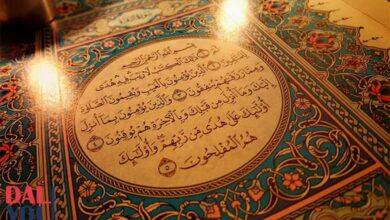 بِسْمِ اللَّهِ الرَّحْمَٰنِ الرَّحِيمِ
الٓمٓ ۝ ذَٰلِكَ الْكِتَابُ لَا رَيْبَ فِيهِ هُدًى
لِلْمُتَّقِينَ ۝ الَّذِينَ يُؤْمِنُونَ بِالْغَيْبِ وَيُقِيمُونَ الصَّلَاةَ
وَمِمَّا رَزَقْنَاهُمْ يُنْفِقُونَ ۝ وَالَّذِينَ يُؤْمِنُونَ بِمَا أُنْزِلَ
إِلَيْكَ وَمَا أُنْزِلَ مِنْ قَبْلِكَ وَبِالْآخِرَةِ هُمْ يُوقِنُونَ ۝
أُولَٰئِكَ عَلَىٰ هُدًى مِنْ رَبِّهِمْ وَأُولَٰئِكَ
هُمُ الْمُفْلِحُونَ ٥
DAL